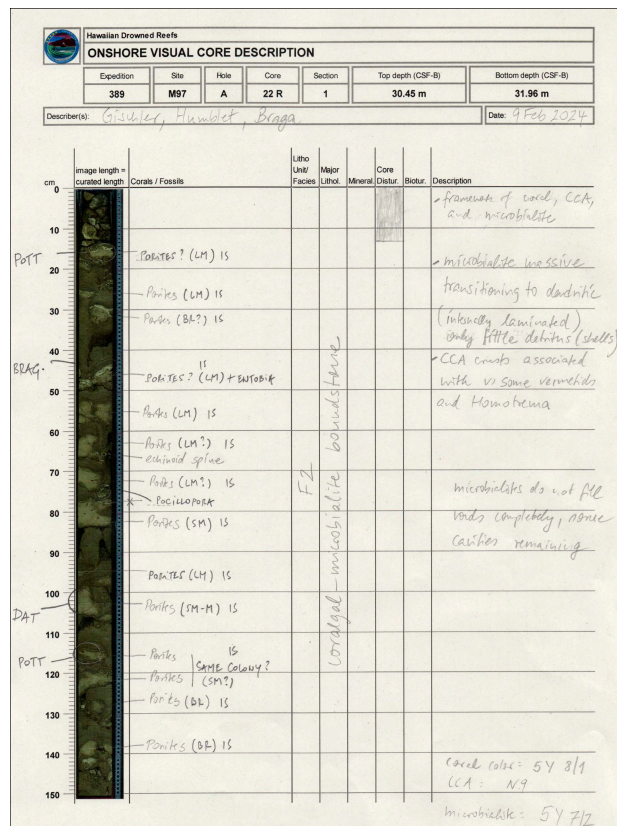 Hawaiian Drowned Reefs
ONSHORE VISUAL CORE DESCRIPTION
Expedition Site Hole Core Section Top depth (CSF-B) Bottom depth (CSF-B)
389 M97 A 22 R 1 30.45 m 31.96 m
Describer(s): Gischler, Humblet, Braga
Date: 9 Feb 2024
cm
image length = curated length
Corals / Fossils
Litho Unit/ Facies
Major Lithol.
Mineral.
Core Distur.
Biotur.
Description
0
10
20
30
40
50
60
70
80
90
100
110
120
130
140
150
POTT
BRAG.
DAT
POTT
PORITES? (LM) IS
Porites (LM) IS
Porites (BR?) IS
IS
PORITES? (LM) + ENTOBIA
Porites (LM) IS
Porites (LM?) IS
echinoid spine
Porites (LM?) IS
X POCILLOPORA
Porites (SM) IS
PORITES (LM) IS
Porites (SM-M) IS
Porites IS
SAME COLONY?
Porites (SM?)
Porites (BR) IS
Porites (BR) IS
F2
coralgal-microbialite boundstone
- framework of coral, CCA,
and microbialite
- microbialite massive
transitioning to dendritic
(internally laminated)
only little detritus (shells)
- CCA crusts associated
with some vermetids
and Homotrema
microbialites do not fill
voids completely, some
cavities remaining
coral color: 5Y 8/1
CCA: N9
microbialite: 5Y 7/2